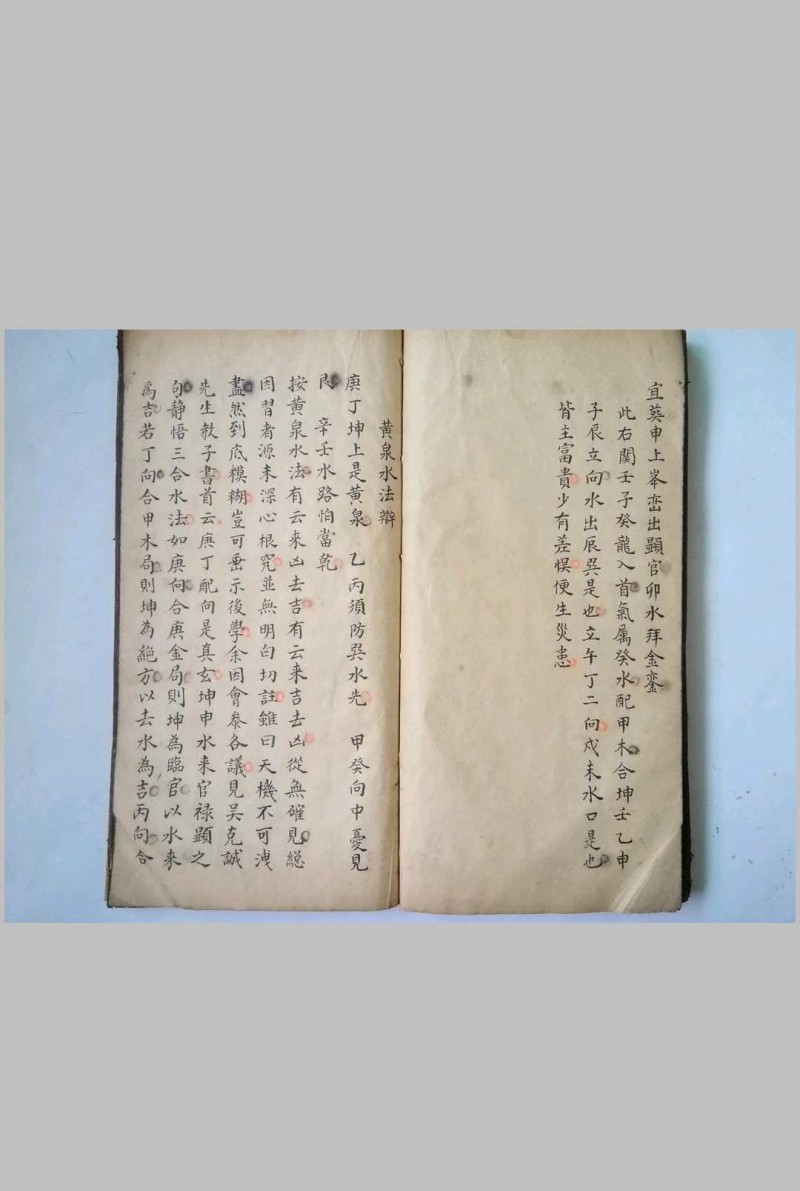 宜葵申上峯巒出顕官卯水拜金鑾
此右関壬子癸龍入首氣属癸水配甲木合坤壬乙申
子辰立向水出辰巽是也立午丁二向戍未水口是也
皆主富貴少有差悮便生災患
黄泉水法辯
庚丁坤上是黄泉 乙丙須防巽水先 甲癸向中憂見
艮 辛壬水路怕當乾
按黄泉水法有云来凶去吉有云来吉去凶從無確見総
因習者源未深心根究並無明白切註雖曰天機不可洩
盡然到底模糊豈可垂示後學余因會叅各議見吴克誠
先生教子書首云庚丁配向是真玄坤申水来官禄顕之
句静悟三合水法如庚向合庚金局則坤為臨官以水来
為吉若丁向合甲木局則坤為絶方以去水為吉丙向合